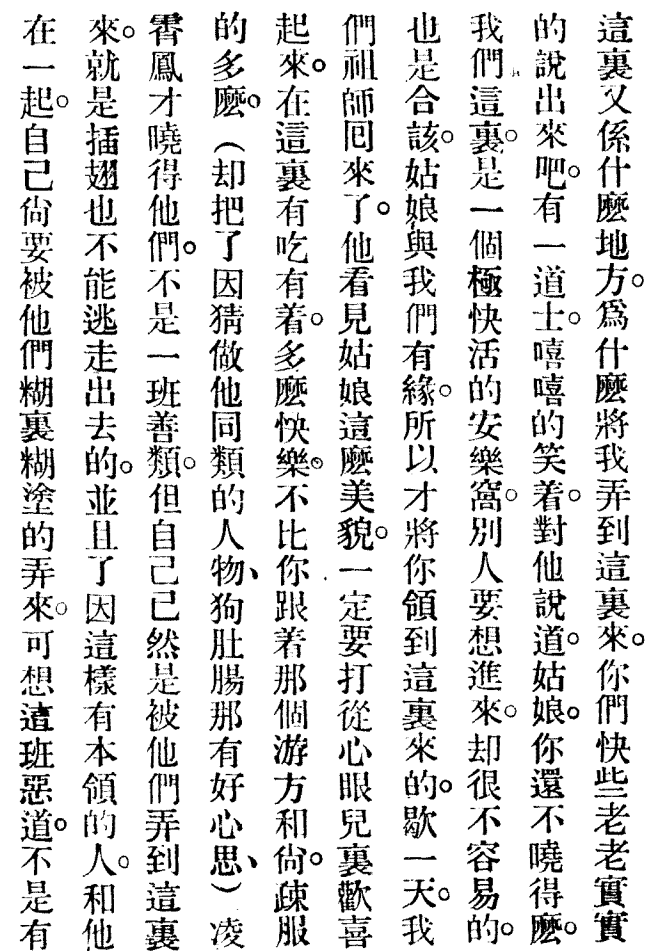 這裏又係什麽地方。爲什麽將我弄到這裏來。你們快些老老實實
的說出來吧。有一道士。嘻嘻的笑着。對他說道。姑娘。你還不曉得麽。
我們這裏。是一個極快活的安樂窩。別人要想進來。却很不容易的。
也是合該。姑娘與我們有緣。所以才將你領到這裏來的。歇一天。我
們祖師囘來了。他看見姑娘這麽美貌。一定要打從心眼兒裏歡喜
起來。在這裏有吃有着。多麽快樂。不比你跟着那個游方和尙。疎服
的多麽。（却把了因猜做他同類的人物、狗肚腸那有好心思、）凌
霄鳳才曉得他們。不是一班善類。但自己已然是被他們弄到這裏
來。就是插翅也不能逃走出去的。並且了因這樣有本領的人。和他
在一起。自己尙要被他們糊裏糊塗的弄來。可想這班惡道。不是有